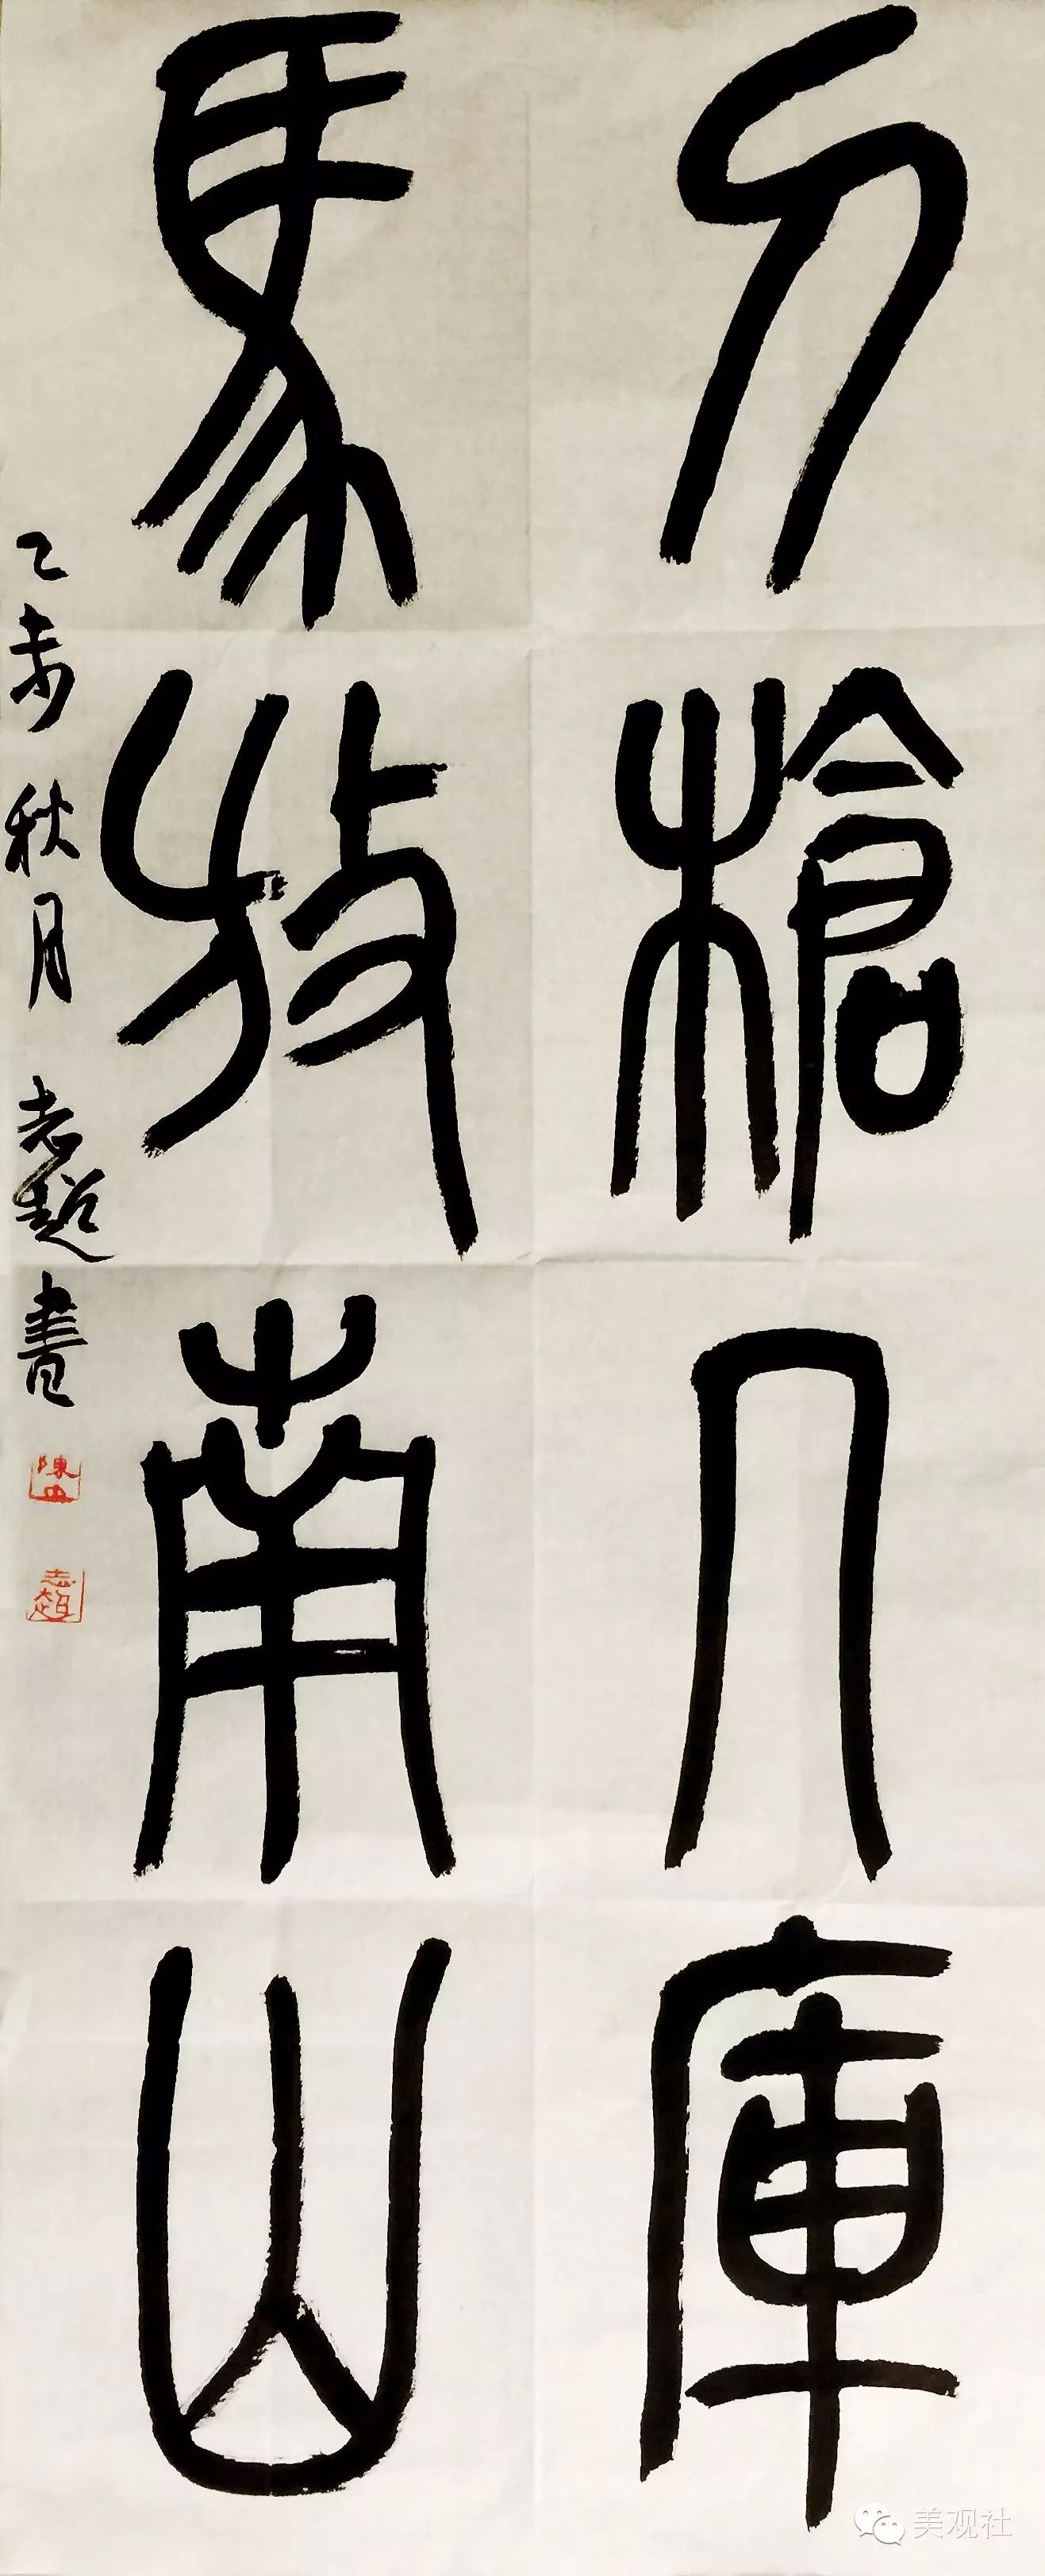 刀槍入庫
馬放南山
乙未秋月志超書
陳
志超
美观社